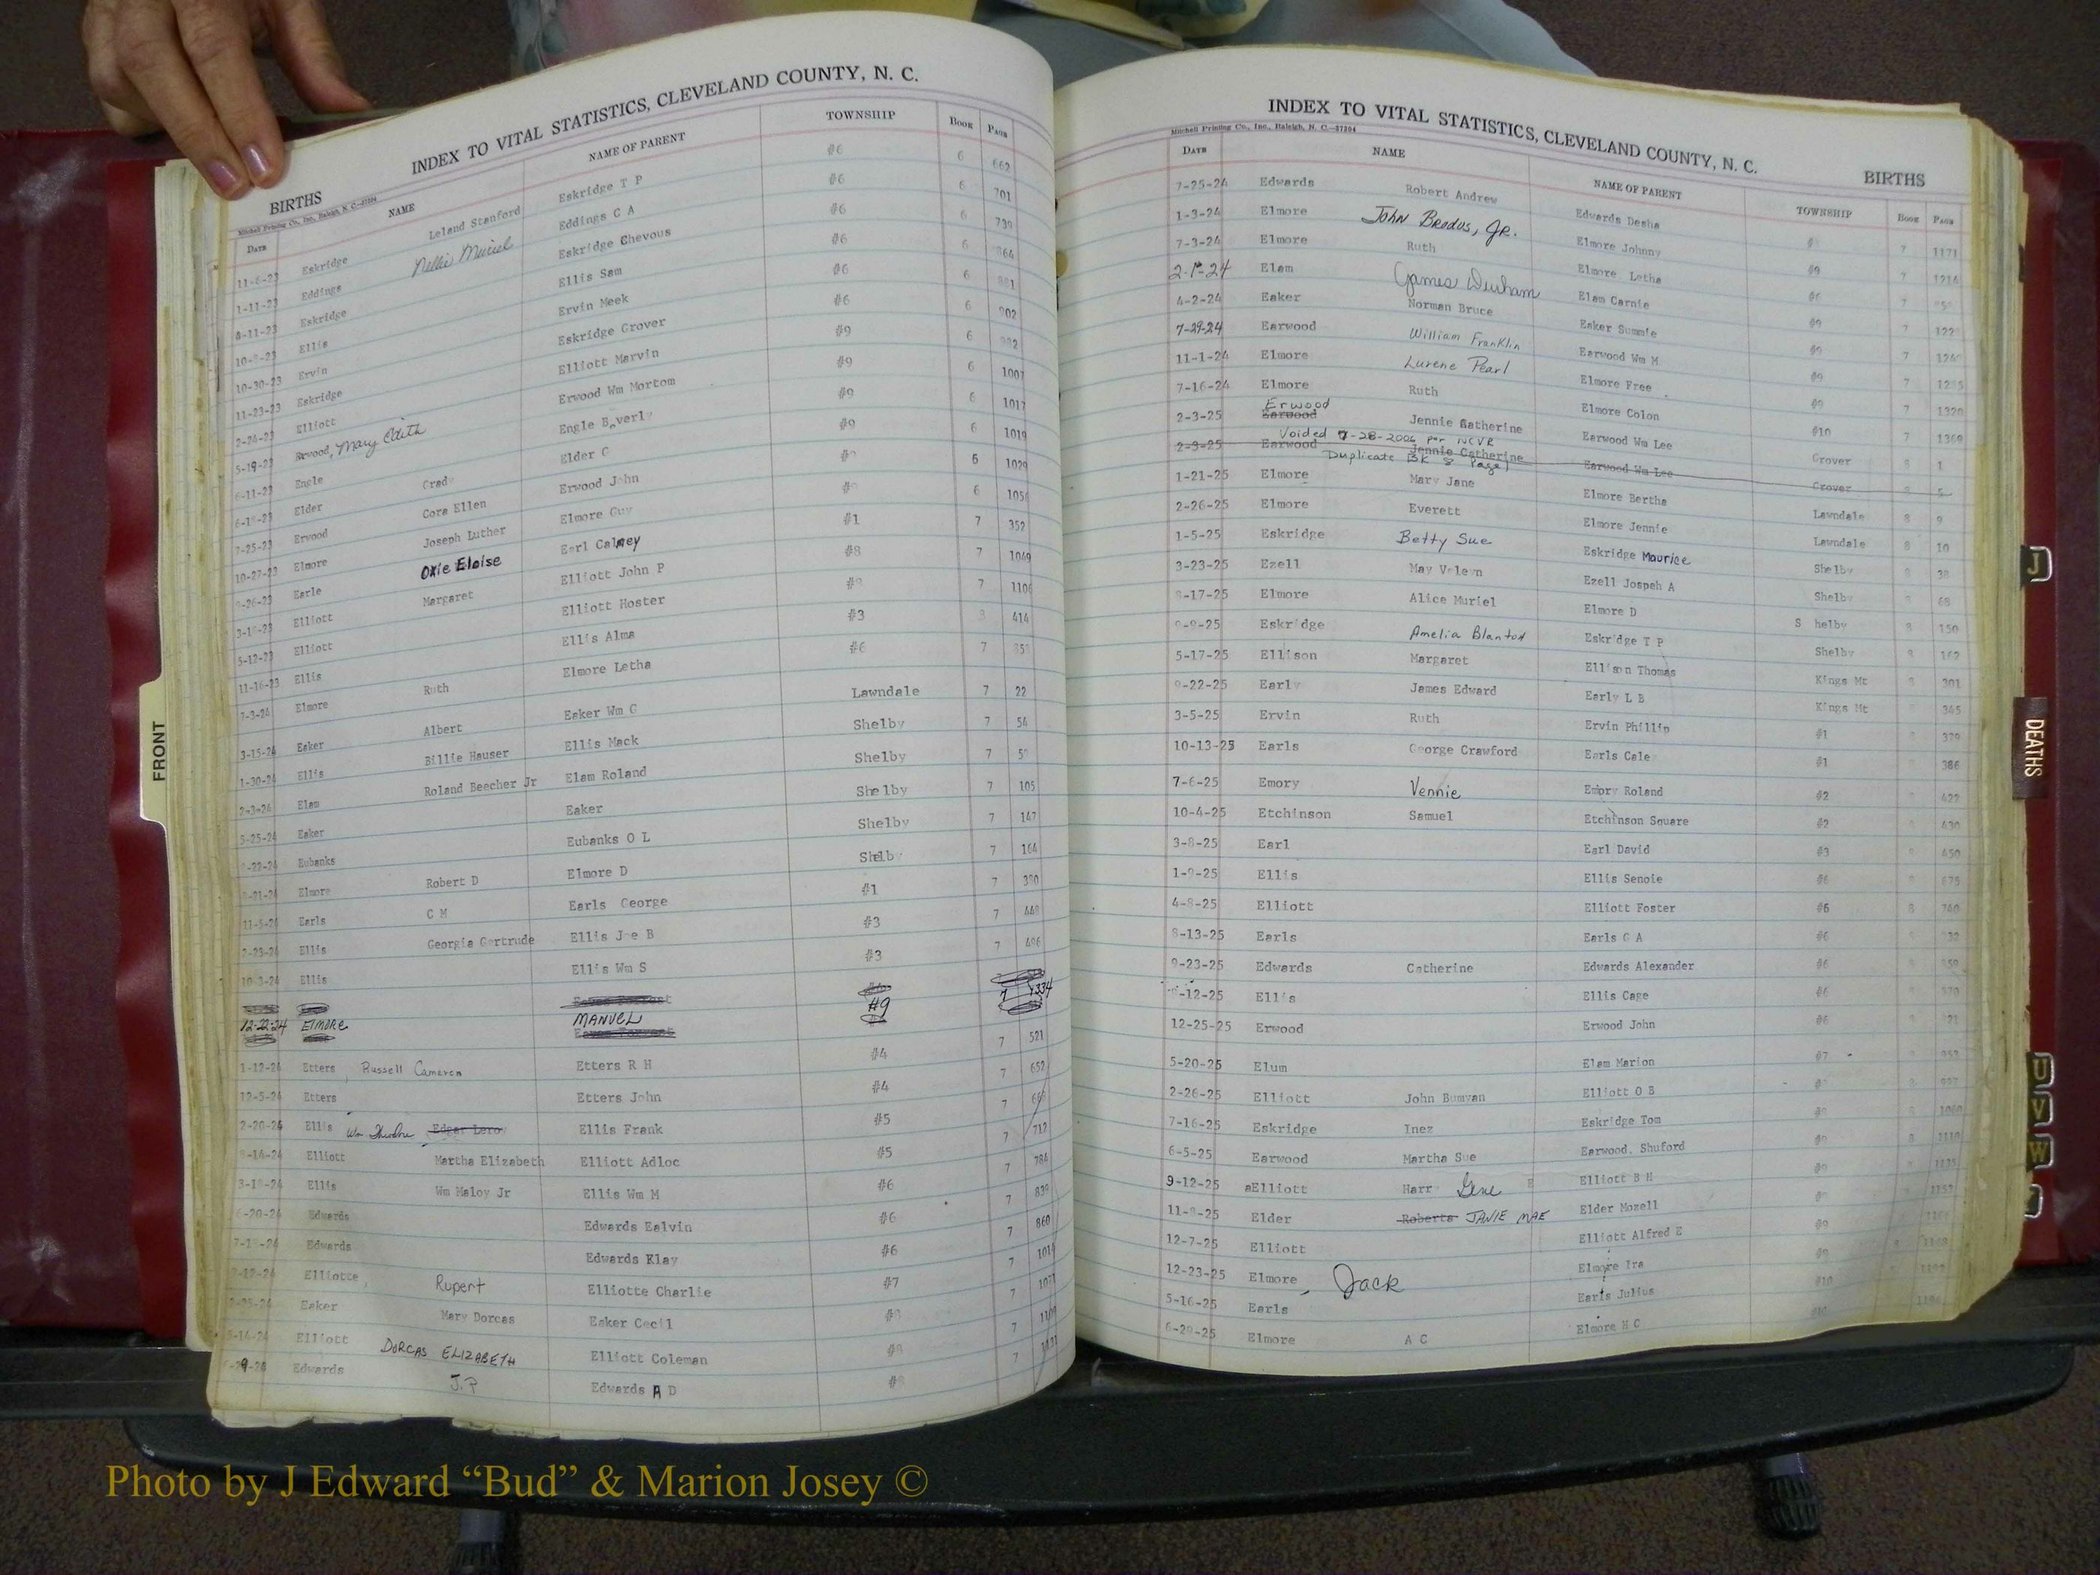 INDEX TO VITAL STATISTICS, CLEVELAND COUNTY, N. C.
BIRTHS
Mitchell Printing Co., Inc., Raleigh, N. C.
DATE NAME NAME OF PARENT TOWNSHIP BOOK PAGE
11-6-23 Eskridge Leland Stanford Eskridge T P #6 6 662
1-11-23 Eddings Nellie Muriel Eddings C A #6 6 701
8-11-23 Eskridge Eskridge Chevous #6 6 739
10-8-23 Ellis Ellis Sam #6 6
10-30-23 Ervin Ervin Meek #6 6
11-23-23 Eskridge Eskridge Grover #6 6
2-24-23 Elliott Elliott Marvin #9 6
5-19-23 Erwood, Mary Edith Erwood Wm Mortom #9 6 1007
6-11-23 Engle Grady Engle Beverly #9 6 1017
Elder Cora Ellen Elder C #9 6 1019
7-25-23 Erwood Joseph Luther Erwood John 6 1029
10-27-23 Elmore Oxie Eloise Elmore Guy 6
Earle Margaret Earl Calney #1 7 352
Elliott Elliott John P #8 7 1049
5-12-23 Elliott Elliott Hoster 7
11-16-23 Ellis Ellis Alma #3 414
7-3-24 Elmore Ruth Elmore Letha #6 7
3-15-24 Eaker Albert Eaker Wm G Lawndale 7 22
1-30-24 Ellis Billie Hauser Ellis Mack Shelby 7 54
2-3-24 Elam Roland Beecher Jr Elam Roland Shelby 7
5-25-24 Eaker Eaker Shelby 7 105
Eubanks Eubanks O L Shelby 7 147
Elmore Robert D Elmore D Shelby 7 164
11-5-24 Earls C M Earls George #1 7
2-23-24 Ellis Georgia Gertrude Ellis Joe B #3 7
10-3-24 Ellis Ellis Wm S #3 7
12-22-24 Elmore MANUEL #9 7 1334
1-12-24 Etters Russell Cameron Etters R H #4 7 521
12-5-24 Etters Etters John #4 7 652
2-20-24 Ellis Wm Theodore Edgar Leroy Ellis Frank #5 7
Elliott Martha Elizabeth Elliott Adloc #5 7 712
Ellis Wm Maloy Jr Ellis Wm M #6 7 784
Edwards Edwards Ealvin #6 7
Edwards Edwards Klay #6 7 860
Elliotte Rupert Elliotte Charlie #7 7
Eaker Mary Dorcas Eaker Cecil 7
5-14-24 Elliott DORCAS ELIZABETH Elliott Coleman 7
Edwards J.P Edwards A D
FRONT
INDEX TO VITAL STATISTICS, CLEVELAND COUNTY, N. C.
BIRTHS
Mitchell Printing Co., Inc., Raleigh, N. C.
DATE NAME NAME OF PARENT TOWNSHIP BOOK PAGE
7-25-24 Edwards Robert Andrew Edwards Desha 7 1171
1-3-24 Elmore John Brodus, Jr. Elmore Johnny #9 7 1214
7-3-24 Elmore Ruth Elmore Letha #6 7
2-1-24 Elam James Durham Elam Carnie #9 7
4-2-24 Eaker Norman Bruce Eaker Summie #9 7
7-29-24 Earwood William Franklin Earwood Wm M #9 7
11-1-24 Elmore Lurene Pearl Elmore Free #9 7
7-16-24 Elmore Ruth Elmore Colon #10 7 1369
2-3-25 Erwood Earwood Jennie Catherine Earwood Wm Lee Grover 8 1
Voided 7-28-2006 per NCVR
2-3-25 Earwood Jennie Catherine Earwood Wm Lee Grover 8 5
Duplicate BK 8 Page 1
1-21-25 Elmore Mary Jane Elmore Bertha Lawndale 8 9
2-26-25 Elmore Everett Elmore Jennie Lawndale 8 10
1-5-25 Eskridge Betty Sue Eskridge Maurice Shelby 8
3-23-25 Ezell May Velevn Ezell Jospeh A Shelby 8 68
8-17-25 Elmore Alice Muriel Elmore D S helby 8 150
Eskridge Amelia Blanton Eskridge T P Shelby 8 162
5-17-25 Ellison Margaret Ellison Thomas Kings Mt 8 301
9-22-25 Early James Edward Early L B Kings Mt 345
3-5-25 Ervin Ruth Ervin Phillip #1 8
10-13-25 Earls George Crawford Earls Cale #1 386
7-6-25 Emory Vennie Emory Roland #2 422
10-4-25 Etchinson Samuel Etchinson Square #2 430
3-8-25 Earl Earl David #3 450
1-9-25 Ellis Ellis Senoie #6 675
4-8-25 Elliott Elliott Foster #6 8
8-13-25 Earls Earls G A #6
9-23-25 Edwards Catherine Edwards Alexander #6
Ellis Ellis Cage #6
12-25-25 Erwood Erwood John #6
5-20-25 Elum Elam Marion #7
2-26-25 Elliott John Bunyan Elliott O B
7-16-25 Eskridge Inez Eskridge Tom
6-5-25 Earwood Martha Sue Earwood, Shuford
9-12-25 Elliott Harr Gene Elliott B H
11-8-25 Elder Roberts JANIE MAE Elder Mozell
12-7-25 Elliott Elliott Alfred E
12-23-25 Elmore, Jack Elmore Ira
5-16-25 Earls Earls Julius
6-29-25 Elmore A C Elmore H C
J
DEATHS
U
V
W
Photo by J Edward “Bud” & Marion Josey ©